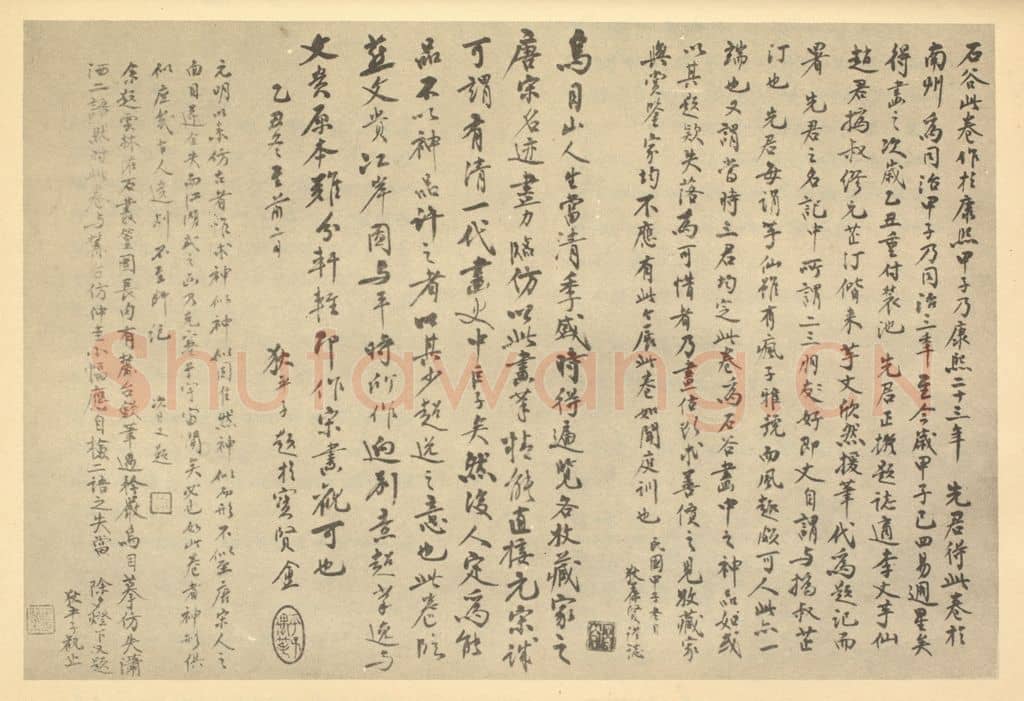 石谷此卷作於康熙甲子乃康熙二十三年 先君得此卷於
南州為同治甲子乃同治三年至今歲甲子已四易週星矣
得畫之次歲乙丑重付裝池 先君正擬題誌適李丈芋仙
趙君撝叔偕元芷汀偕來芋丈欣然援筆代為題記而
署 先君之名記中所謂二三朋友好即丈自謂与撝叔芷
汀也 先君每謂芋仙雖有瘋子雅號而風趣頗可人此六一
端也又謂當時三君均定此卷為石谷畫中之神品如或
以其題款失落為可惜者乃畫估求善價之見收藏家
與賞鑒家均不應有此今展此卷如聞庭訓也 民國甲子冬日
狄葆賢謹誌
烏目山人生當清季盛時得遍覽各收藏家之
唐宋名迹盡力臨仿以此畫筆精能直接元宋誠
可謂有清一代畫史中巨子矣然後人定為能
品不以神品許之者以其少超逸之意也此卷臨
燕文貴江岸圖与平時所作迥別意超筆逸与
文貴原本難分軒輊即作宋畫觀可也
乙丑冬至前二日
狄平子題於寶賢盦
元明以來仿古者詐求神似神似固佳然神似而形不似並唐宋人之
面目遂全失而江湖武之畫乃充塞于宇宙間矣必也如此卷者神形俱
似庶幾古人遺則不至師記
次日又題
余題雲林在石叢篁圖長內有蒼台鐵筆過於嚴為目摹仿失瀟
洒二語然對此卷与蕭台仿仲圭小幅應自檢二語之失當 除夕燈下又題
狄平子觀止
Shufawang.CN